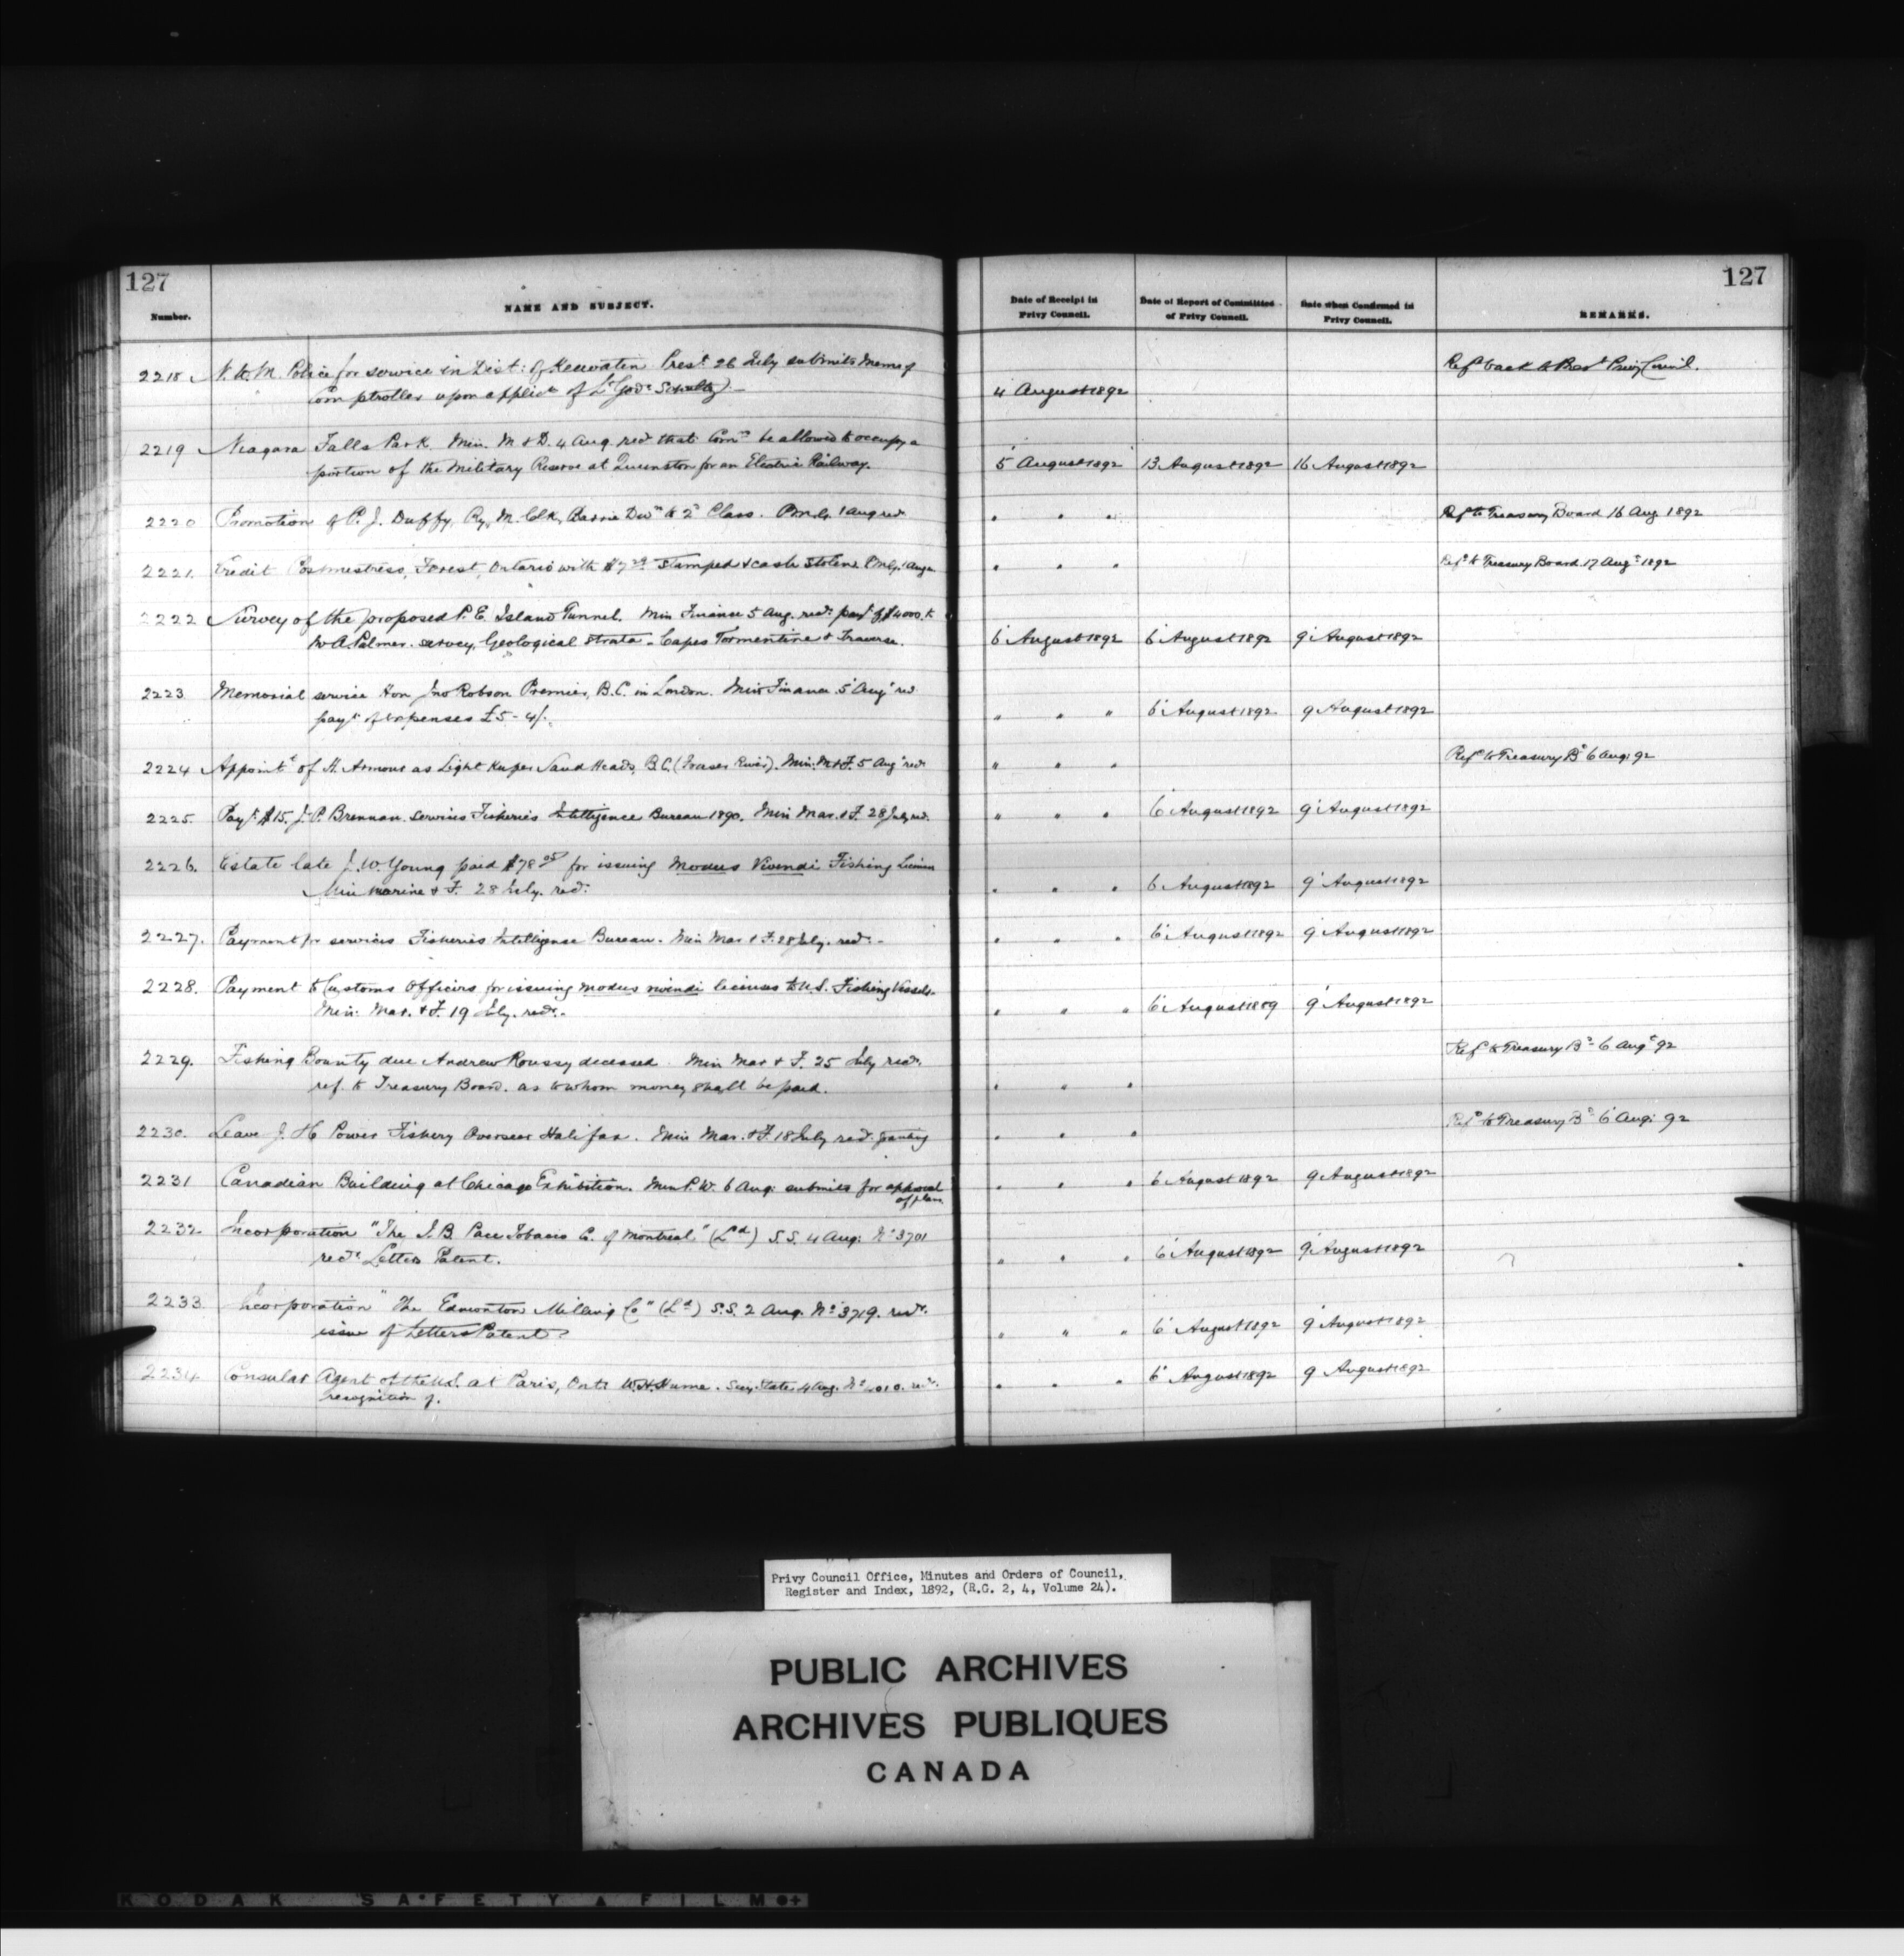 127
127
Number.
NAME AND SUBJECT.
Date of Receipt in
Privy Council.
Date of Report of Committee
of Privy Council.
Date when Confirmed in
Privy Council.
REMARKS.
2218 N.W.M. Police for service in Dist: of Keewatin Presᵗ 26 July submits Memo of
Comptroller upon applicⁿ of Lᵗ Govʳ Schultz) — 4 August 1892 Refᵈ back to Presᵗ Privy Council.
2219 Niagara Falls Park. Min. M & D. 4 Aug. recᵈ that Comʳˢ be allowed to occupy a
portion of the Military Reserve at Queenston for an Electric Railway. 5 August 1892 13 August 1892 16 August 1892
2220 Promotion of P. J. Duffy, Ry. M. Clk, Barrie Divⁿ to 2ᵈ Class. P.M.G. 1 Aug recᵈ " " " Refᵈ to Treasury Board 16 Aug 1892
2221. Credit Postmistress, Forest, Ontario with Stamps & cash Stolen P.M.G. 1 Aug " " " Refᵈ to Treasury Board 17 Augᵗ 1892
2222 Survey of the proposed P. E. Island Tunnel. Min Finance 5 Aug. recᵈˢ payᵗ of $4000. to
W. A. Palmer. survey, Geological Strata - Capes Tormentine & Traverse. 6 August 1892 6 August 1892 9 August 1892
2223 Memorial service Hon Jno Robson Premier, B.C. in London. Minʳ Finance 5 Augᵗ recᵈ
payᵗ of expenses £5-4/-. " " " 6 August 1892 9 August 1892
2224 Appointᵗ of H. Armour as Light Keeper Sand Heads, B.C. (Fraser River). Min. M & F. 5 Augᵗ recᵈ " " " Refᵈ to Treasury Bᵈ 6 Aug: 92
2225. Payᵗ $15. J. P. Brennan. Services Fisheries Intelligence Bureau 1890. Min Mar. & F. 28 July recᵈ. " " " 6 August 1892 9 August 1892
2226. Estate late J. W. Young paid $78 for issuing Modus Vivendi Fishing Licenses
Min Marine & F. 28 July. recᵈ: " " " 6 August 1892 9 August 1892
2227. Payment for services Fisheries Intelligence Bureau. Min Mar & F. 28 July. recᵈˢ- " " " 6 August 1892 9 August 1892
2228. Payment to Customs Officers for issuing modus vivendi licenses to U.S. Fishing Vessels.
Min. Mar. & F. 19 July. recᵈˢ.- " " " 6 August 1889 9 August 1892
2229. Fishing Bounty due Andrew Roussy deceased. Min Mar & F. 25 July recᵈˢ
ref. to Treasury Board. as to whom money shall be paid. " " " Refᵈ to Treasury Bᵈ 6 Augᵗ 92
2230. Leave J. H. Power Fishery Overseer Halifax. Min Mar. & F. 18 July recᵈ granting " " " Refᵈ to Treasury Bᵈ 6 Aug: 92
2231 Canadian Building at Chicago Exhibition. Min P. W. 6 Aug: submits for approval
of plans " " " 6 August 1892 9 August 1892
2232. Incorporation "The J. B. Pace Tobacco Co. of Montreal" (Lᵈ) S.S. 4 Aug: Nº 3701
recᵈˢ Letters Patent. " " " 6 August 1892 9 August 1892
2233 Incorporation "The Edmonton Milling Co" (Lᵈ) S.S. 2 Aug. Nº 3719. recᵈˢ.
issue of Letters Patent " " " 6 August 1892 9 August 1892
2234 Consular Agent of the U.S. at Paris, Ontº W. H. Hume. Secy. State 4 Aug. Nº 4010. recᵈˢ.
recognition of. " " " 6 August 1892 9 August 1892
Privy Council Office, Minutes and Orders of Council,
Register and Index, 1892, (R.G. 2, 4, Volume 24).
PUBLIC ARCHIVES
ARCHIVES PUBLIQUES
CANADA
KODAK SAFETY FILM